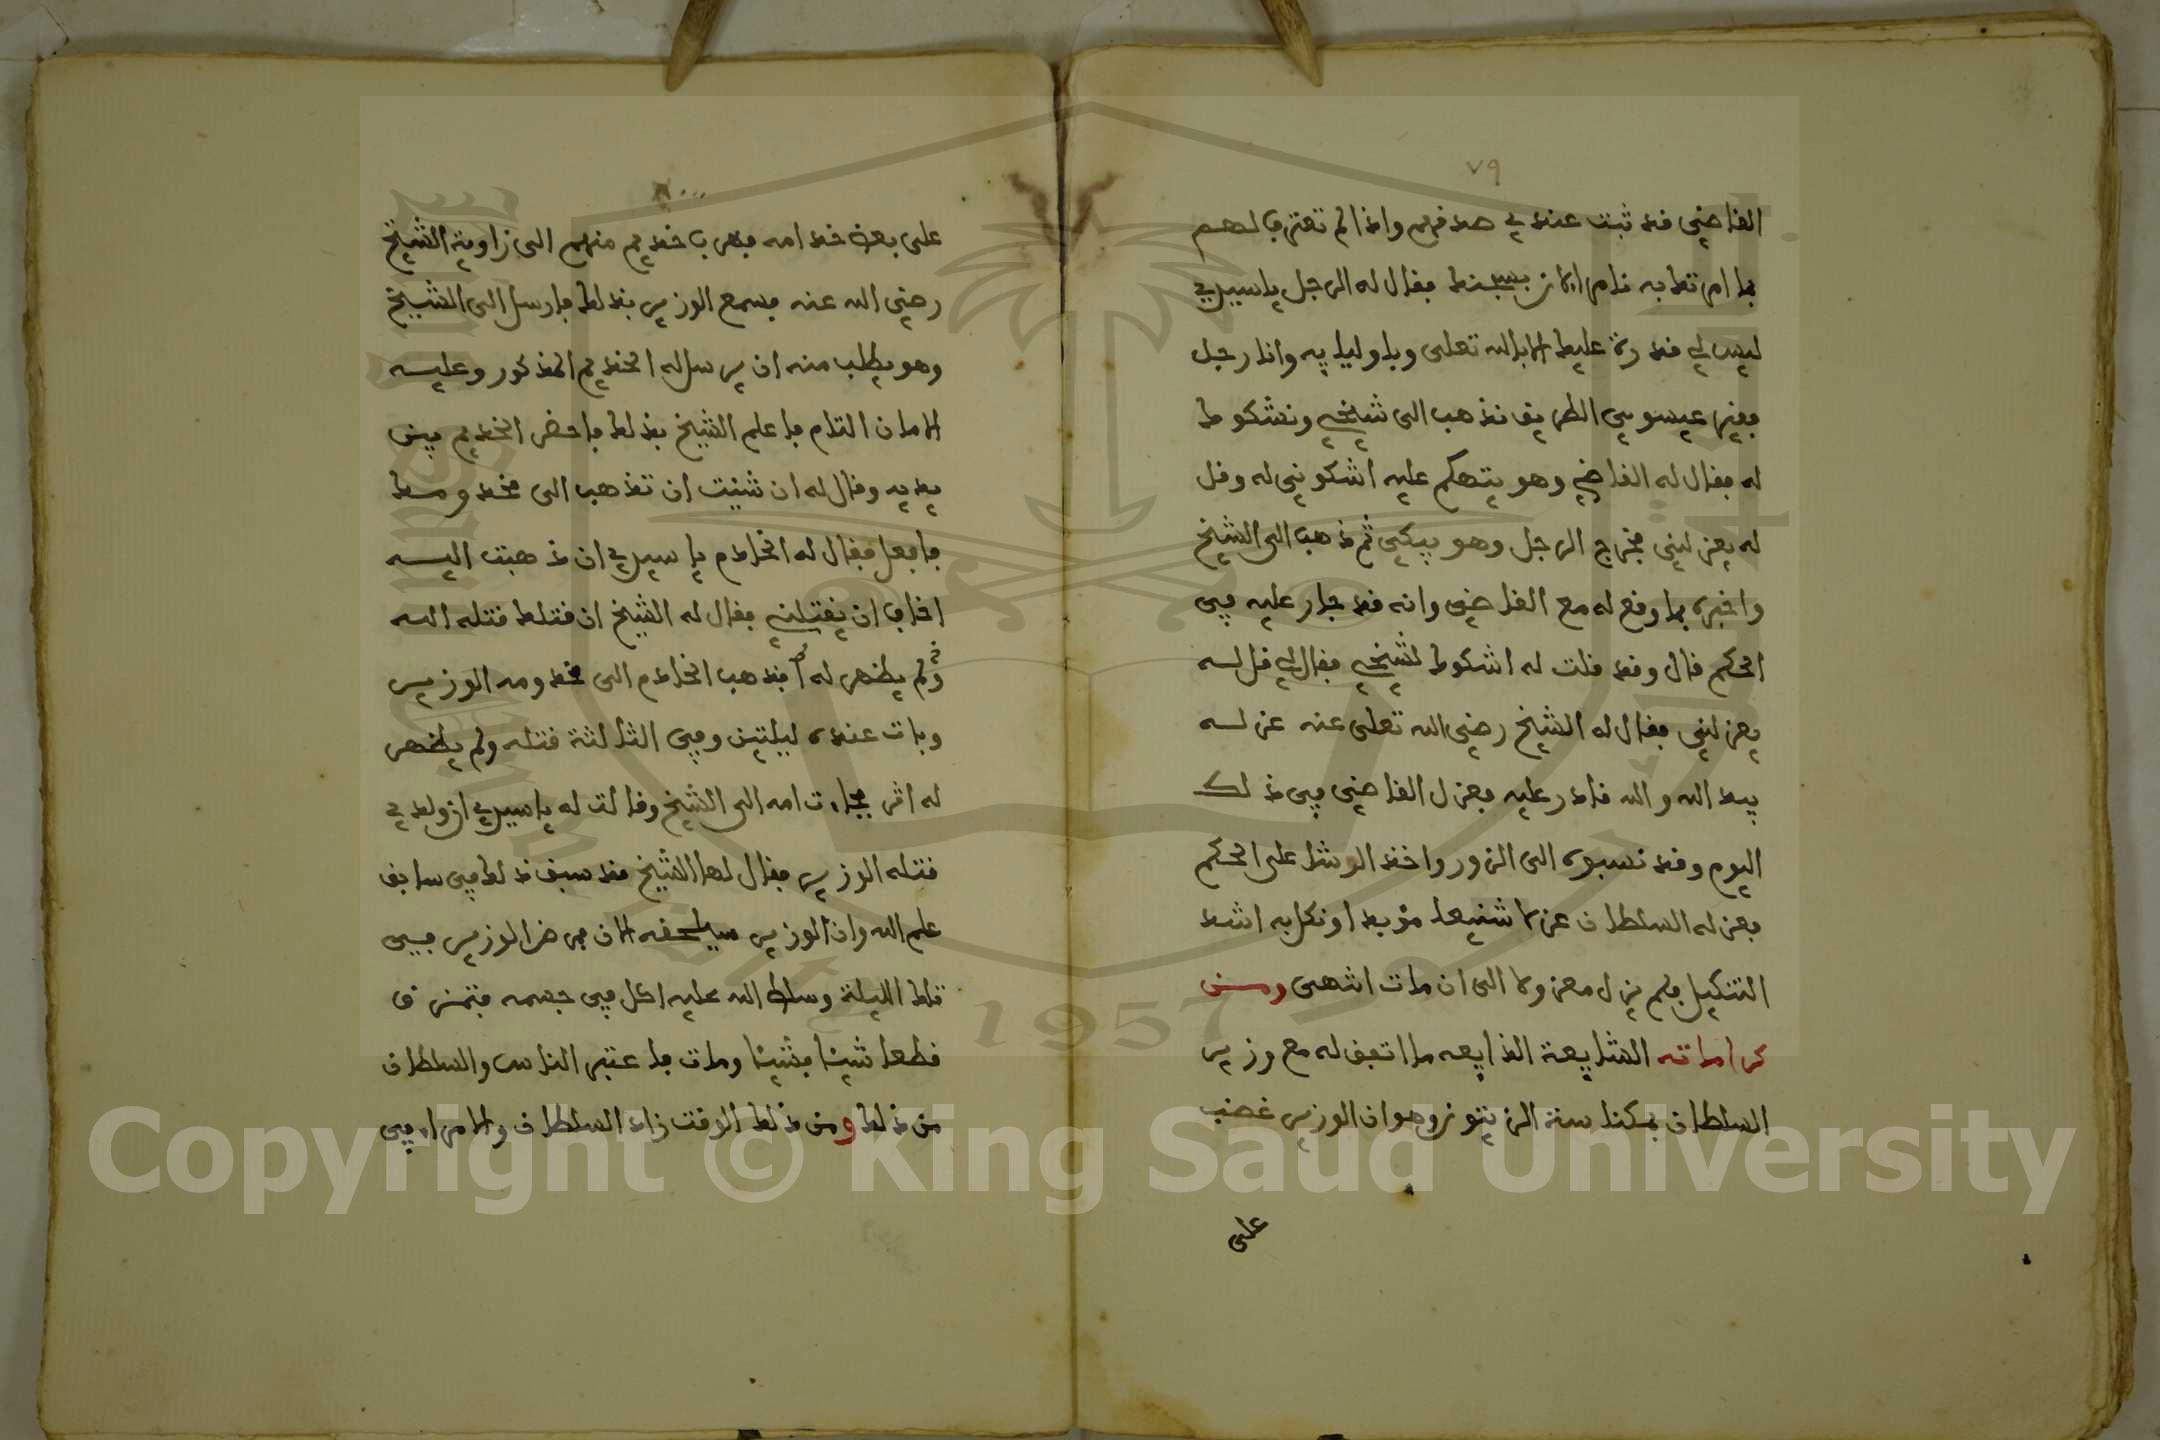 ٧٩
القاضي قد ثبت عندي صدقهم واذا لم تعترف لهم
فما امرتك به نامر الان بسجنك فقال له الرجل يا سيدي
ليس لي قدرة عليك الا بالله تعلى وباوليايه وانا رجل
فقير عيسوي الطريق نذهب الى شيخي ونشكوك
له فقال له القاضي وهو يتهكم عليه اشكوني له وقل
له يعزلني فخرج الرجل وهو يبكي ثم ذهب الى الشيخ
واخبره بما وقع له مع القاضي وانه قد جار عليه في
الحكم قال وقد قلت له اشكوك لشيخي فقال لي قل له
يعزلني فقال له الشيخ رضي الله تعلى عنه عزله
بيد الله والله قادر عليه فعزل القاضي في ذلك
اليوم وقد نسبوه الى الزور واخذ الرشا على الحكم
فعزله السلطان عزلا شنيعا مؤبدا ونكل به اشد
التنكيل فلم يزل معزولا الى ان مات انتهى ومن
كراماته الشايعة الذايعه ما اتفق له مع وزير
السلطان بمكناسة الزيتون وهو ان الوزير غضب
على
٨٠
على بعض خدامه فهرب خديم منهم الى زاوية الشيخ
رضي الله عنه فسمع الوزير بذلك فارسل الى الشيخ
وهو يطلب منه ان يرسل له الخديم المذكور وعليه
الامان التام فاعلم الشيخ بذلك فاحضر الخديم بين
يديه وقال له ان شئيت ان تذهب الى مخدومك
فافعل فقال له الخادم يا سيدي ان ذهبت اليه
اخاف ان يقتلني فقال له الشيخ ان قتلك قتله الله
ولم يظهر له اثر فذهب الخادم الى مخدومه الوزير
وبات عنده ليلتين وفي الثالثة قتله ولم يظهر
له اثر فجاءت امه الى الشيخ وقالت له يا سيدي ان ولدي
قتله الوزير فقال لها الشيخ قد سبق ذلك في سابق
علم الله وان الوزير سيلحقه الان فمرض الوزير في
تلك الليلة وسلط الله عليه اكل في جسمه فتمزق
قطعا شيئا فشيئا ومات فاعتبر الناس والسلطان
من ذلك ومن ذلك الوقت زاد السلطان والامراء في
Copyright © King Saud University
1957